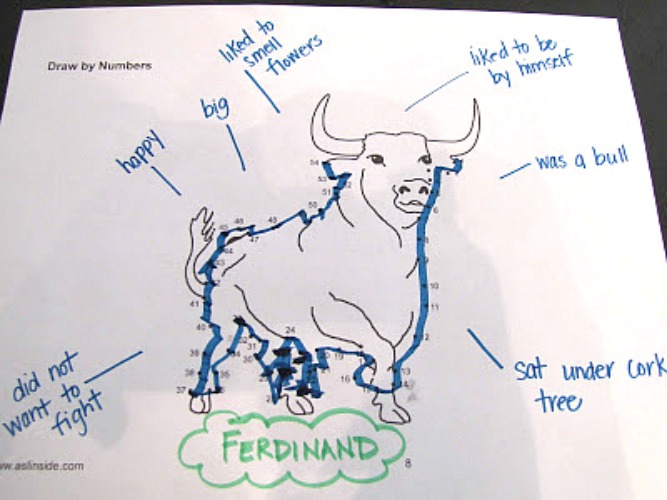 Draw by Numbers
liked to
smell
flowers
liked to be
by himself
big
happy
was a bull
54
53
51
52
50
48
46
45
47
44
43
42
41
40
39
38
37
35
32
31
30
24
20
19
16
14
12
11
10
9
8
6
did not
want to
fight
sat under cork
tree
FERDINAND
w.aslinside.com
8